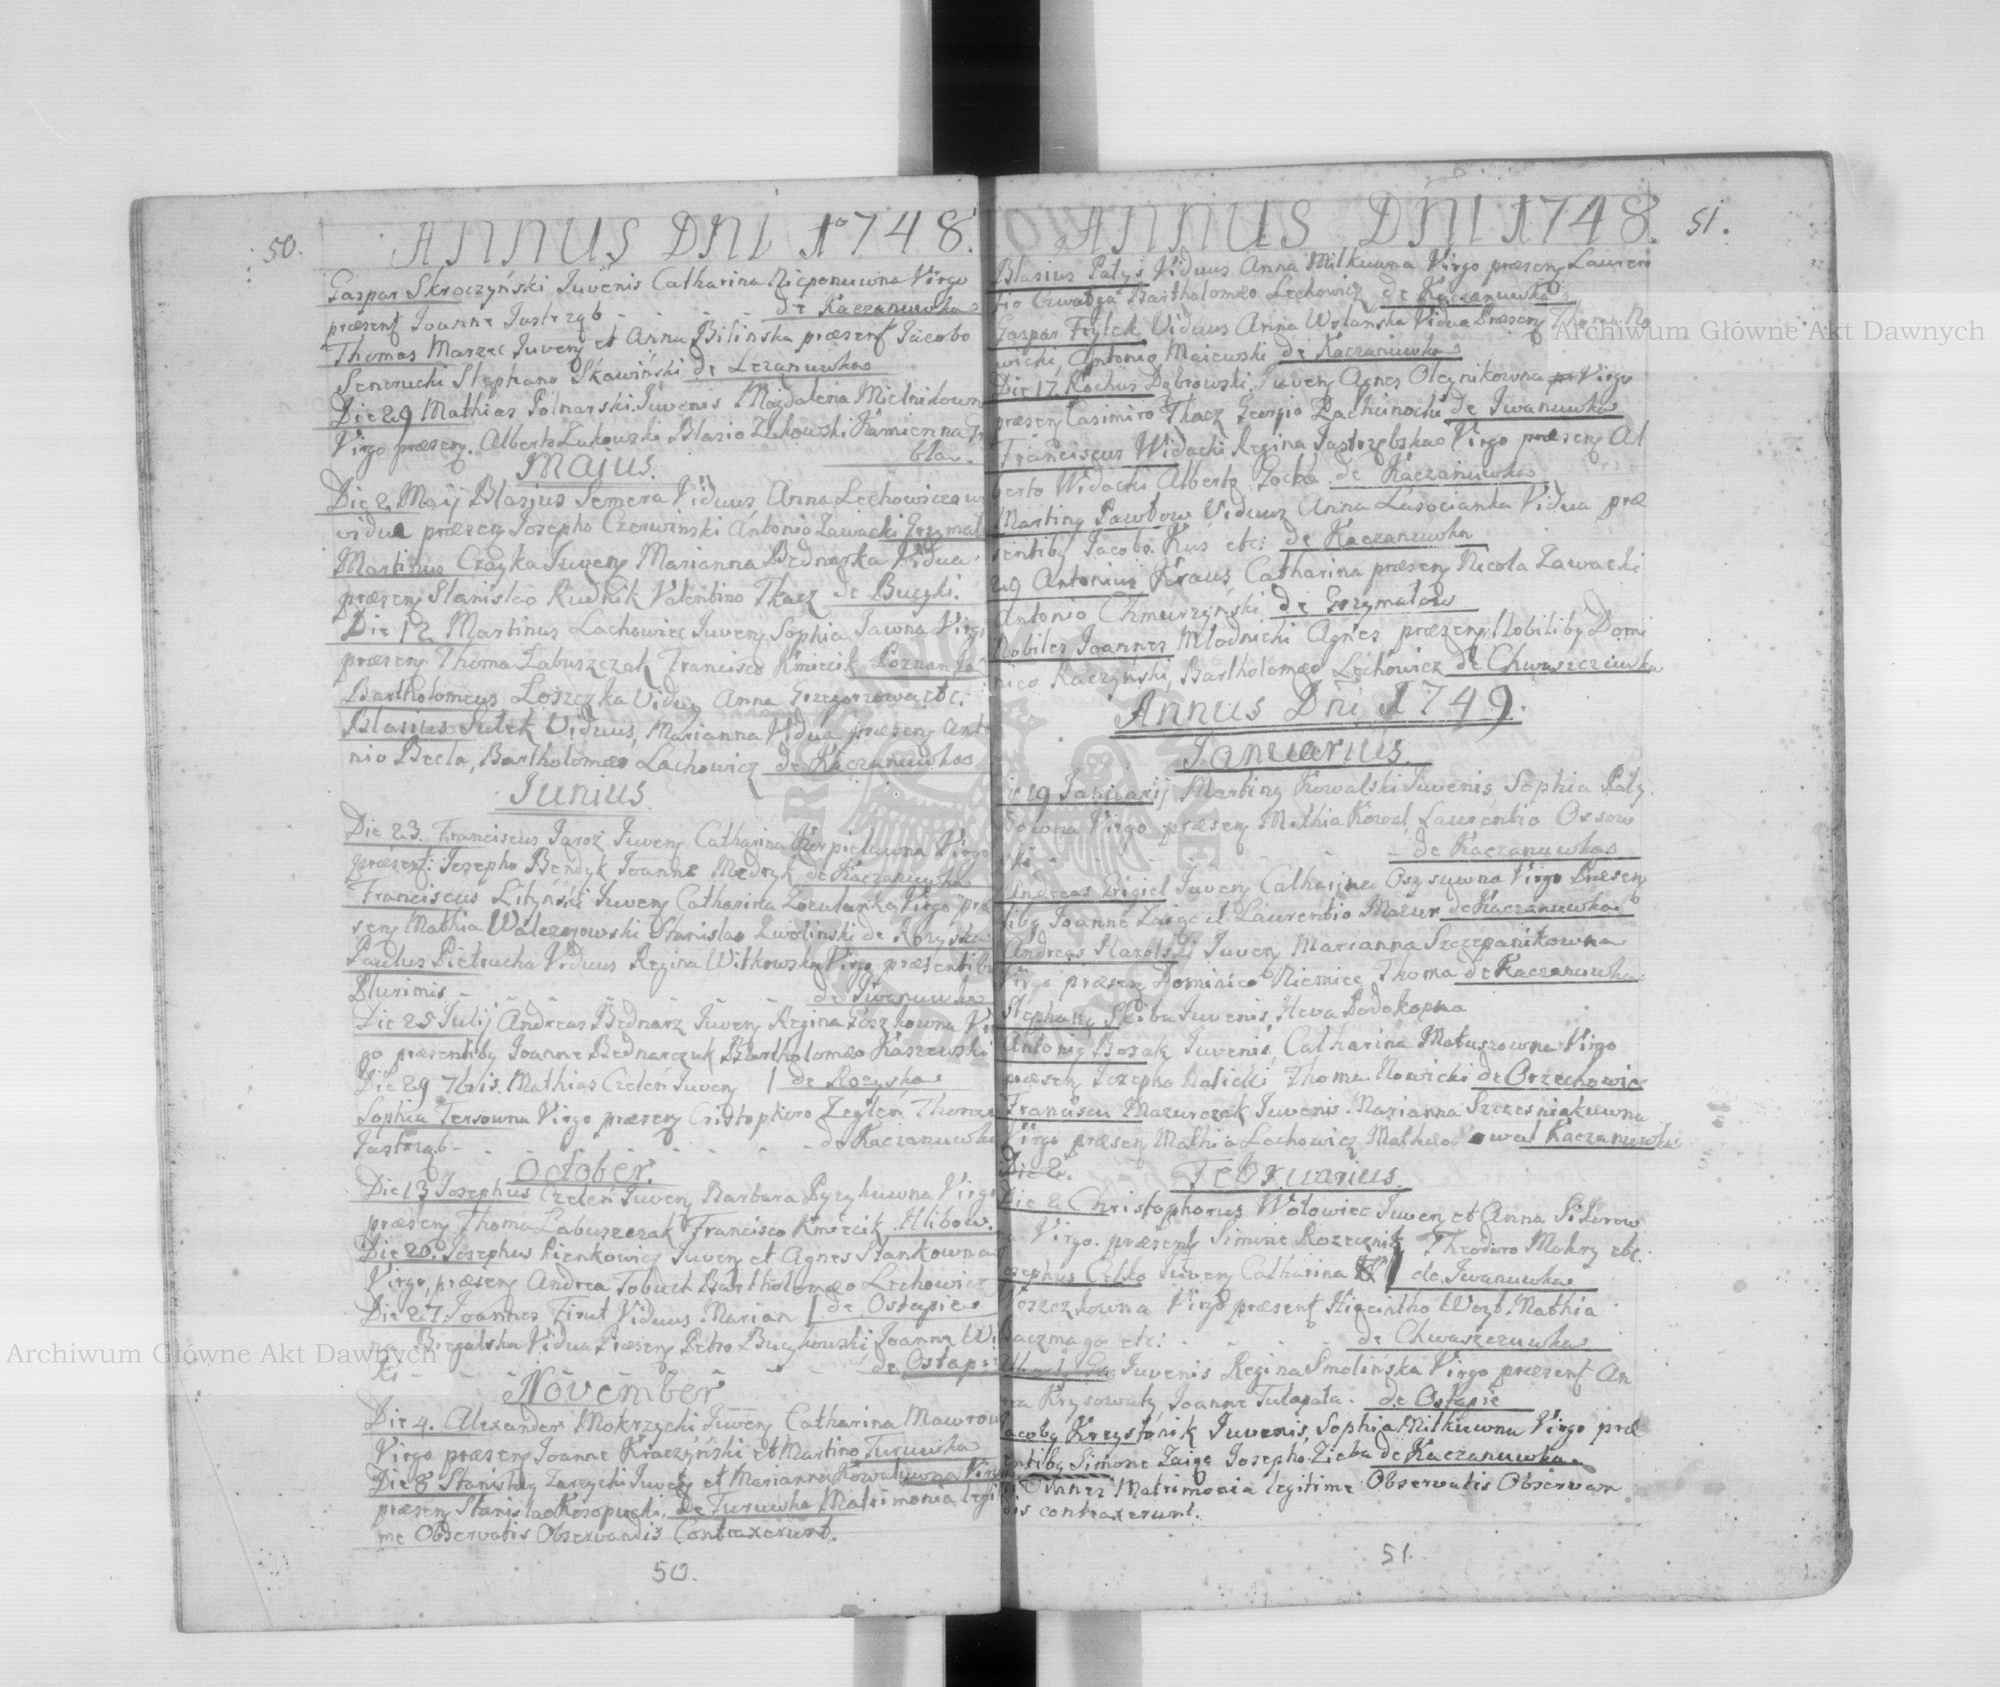 50.
ANNUS DNI 1748.
Gaspar Skroczyński Juvenis Catharina Nieponuwna Virgo
præsent Joanne Jastrząb - - - - de Kaczanuwka
Thomas Marzec Juveny et Anna Bilinska præsent Jacobo
Seneruchi Stephano Skawiński de Lezanuwka
Die 29 Mathias Polnarski Juvenis Magdalena Mielnikown
Virgo præseny. Alberto Zukowski Blasio Zukowski Kamienna Gr
bla.
Maius.
Die 2 Maij Blasius Semera Viduus Anna Lechowicza
vidua præseny Josepho Czerwinski Antonio Zawacki Grzymal
Martinus Czayka Juveny Marianna Bednarka Vidua
præseny Stanislao Rudnik Valentino Tkacz de Bucyki.
Die 12 Martinus Lachowicz Juveny Sophia Jawna Virgi
præseny Thoma Labuszczak Francisco Kmiecik Poznanka
Bartholomeus Loszczka Viduy Anna Grzegorzowa etc:
Blasius Sutek Viduus, Marianna Vidua præseny Anto
nio Becla, Bartholomæo Lachowicz de Kaczanuwka
Junius
Die 23. Franciscus Jaroz Juveny Catharina Karpieluwna Virgo
præsent: Josepho Bendyk Joanne Medryk de Kaczanuwka
Franciscus Lityński Juveny Catharina Zoculanka Virgo præ
seny Mathia Walczerowski Stanislao Zwolinski de Rozyska
Paulus Pietrucha Viduus Regina Witkowska Virgo præsentiby
Plurimis - - - - - de Iwanuwka
Die 25 Julij Andreas Bednarz Juveny Regina Goszkowna Vir
go præsentiby Joanne Bednarczuk Bartholomæo Kaszewski
Die 29 7bris. Mathias Czeleń Juveny | de Rozyska
Sophia Tersowna Virgo præseny Cristophoro Zegleń Thoma
Jastrząb - - - - - - de Kaczanuwka
October.
Die 13 Josephus Czeleń Juveny Barbara Pyzykuwna Virgo
præseny Thoma Labuszczak Francisco Kmiecik Hlibow.
Die 20. Josephus Pienkowicz Juveny et Agnes Stankowna
Virgo, præseny Andrea Tobuch Bartholomæo Lechowicz
Die 27 Joannes Firut Viduus. Marian | de Ostapie
na Biegalska Vidua Præseny Petro Bucykowski Joanne Wil
ki - - - - - de Ostapie
November
Die 4. Alexander Mokrzycki Juveny Catharina Mawrow
Virgo præseny Joanne Kraczyński et Martino Turuwka
Die 8 Stanislay Zarzycki Juveny et Marianna Kowaluwna Virgo
præseny Stanislao Rosopucki, de Turuwka Matrimonia legi
me Observatis Observandis Contraxerunt.
50.
ANNUS DNI 1748. 51.
Blasius Patys Viduus Anna Milkuwna Virgo præseny Lauren
tio Czwalga Bartholomæo Lechowicz de Kaczanuwka
Gaspar Frytck Viduus Anna Wolanska Vidua Præseny Thoma No
wicki, Antonio Maiewski de Kaczaniuwka
Die 17. Rochus Dąbrowski, Juveny Agnes Oleynikowna Virgo
præseny Casimiro Tkacz Georgio Zachcinocki de Iwanuwka
Franciscus Widacki Regina Jastrzębska Virgo præseny Al
berto Widacki Alberto Zocha de Kaczanuwka
Martiny Pawtow Viduus Anna Lasocianka Vidua præ
sentiby Jacobo Kuś etc: de Kaczanuwka
29 Antonius Kraus Catharina præseny Nicola Zawacki
Antonio Chmurzyński. de Grzymałow
Nobiles Joannes Młodnicki Agnes præseny Nobiliby Domi
nico Raczynski, Bartholomæo Lechowicz de Chwaszczewka
Annus Dni 1749.
Januarius.
19 Januarij Martiny Kowalski Juvenis Sophia Paty
sowna Virgo præseny Mathia Kowal Laurentio Ossow
ski - - - - - de Kaczanuwka
Andreas Frigiel Juveny Catharina Osysuwna Virgo Præseny
tiby Joanne Zaige et Laurentio Mazur de Kaczanuwka
Andreas Maxolski Juveny Marianna Szczepanikowna
Virgo præseny Dominico Niemiec Thoma de Kaczanuwka
Stephany Skiba Juvenis Heva Podokopna
Antoniy Bosak Juvenis, Catharina Matuszowna Virgo
præseny Josepho Kalicki Thoma Nowicki de Orzechowic
Franciscu Mazurczak Juvenis. Marianna Szczesniakuwna
Virgo præseny Mathia Lechowicz Matheo Kowal Kaczanuwka
Die 2. Februarius.
Die 2 Christophorus Wołowiec Juveny et Anna Sikorow
Virgo. præseny Simone Rozecznik Theodoro Mokry etc.
Josephus Cebło Juveny Catharina | de Iwanuwka
Toszczkowna Virgo præsent Hiacintho Woyt. Mathia
Kaczmago etc: - - - de Chwaszczuwka
Juvenis Regina Smolińska Virgo præsent An
rea Krysowaty Joanne Tulapata. de Ostapie
Jacoby Krzysfonik Juvenis, Sophia Milkuwna Virgo præ
sentiby Simone Zaige Josepho Zieba de Kaczanuwka.
Omnes Matrimonia legitime Observatis Observan
dis contraxerunt.
51.
Archiwum Główne Akt Dawnych
Archiwum Główne Akt Dawnych